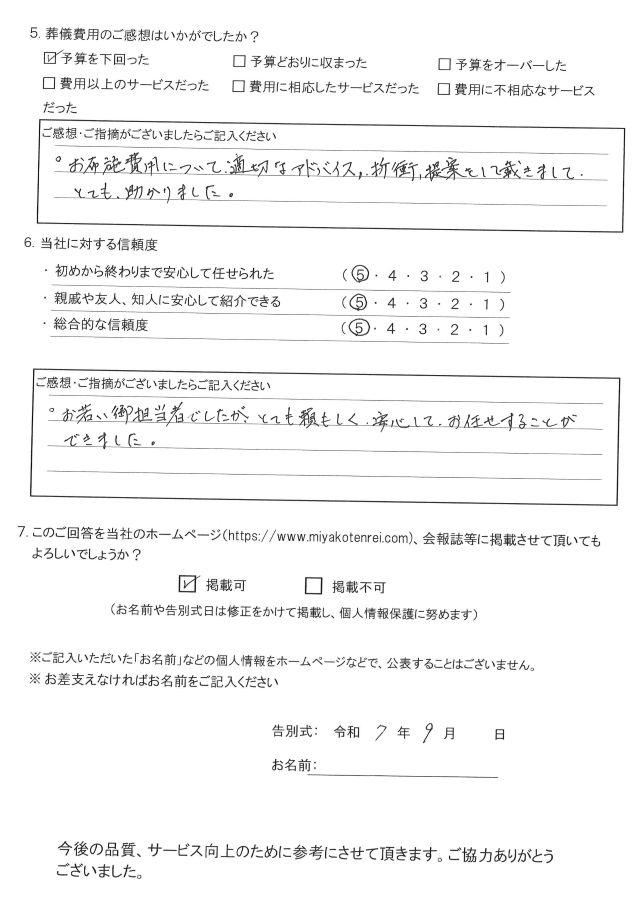 5. 葬儀費用のご感想はいかがでしたか？
☑ 予算を下回った　□ 予算どおりに収まった　□ 予算をオーバーした
□ 費用以上のサービスだった　□ 費用に相応したサービスだった　□ 費用に不相応なサービス
だった
ご感想・ご指摘がございましたらご記入ください
。お布施費用について、適切なアドバイス、折衝、提案をして戴きまして、
とても、助かりました。
6. 当社に対する信頼度
・ 初めから終わりまで安心して任せられた　（⑤・4・3・2・1）
・ 親戚や友人、知人に安心して紹介できる　（⑤・4・3・2・1）
・ 総合的な信頼度　（⑤・4・3・2・1）
ご感想・ご指摘がございましたらご記入ください
。お若い御担当者でしたが、とても頼もしく、安心して、お任せすることが
できました。
7. このご回答を当社のホームページ(https://www.miyakotenrei.com)、会報誌等に掲載させて頂いても
よろしいでしょうか？
☑ 掲載可　□ 掲載不可
（お名前や告別式日は修正をかけて掲載し、個人情報保護に努めます）
※ご記入いただいた「お名前」などの個人情報をホームページなどで、公表することはございません。
※ お差支えなければお名前をご記入ください
告別式： 令和 7 年 9 月　日
お名前：
今後の品質、サービス向上のために参考にさせて頂きます。ご協力ありがとう
ございました。